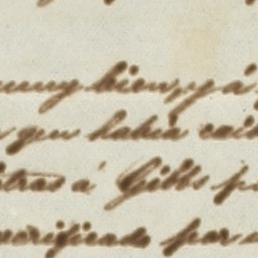 muy bien, y á
que habia caid
otras á Gibbs p
verificado por